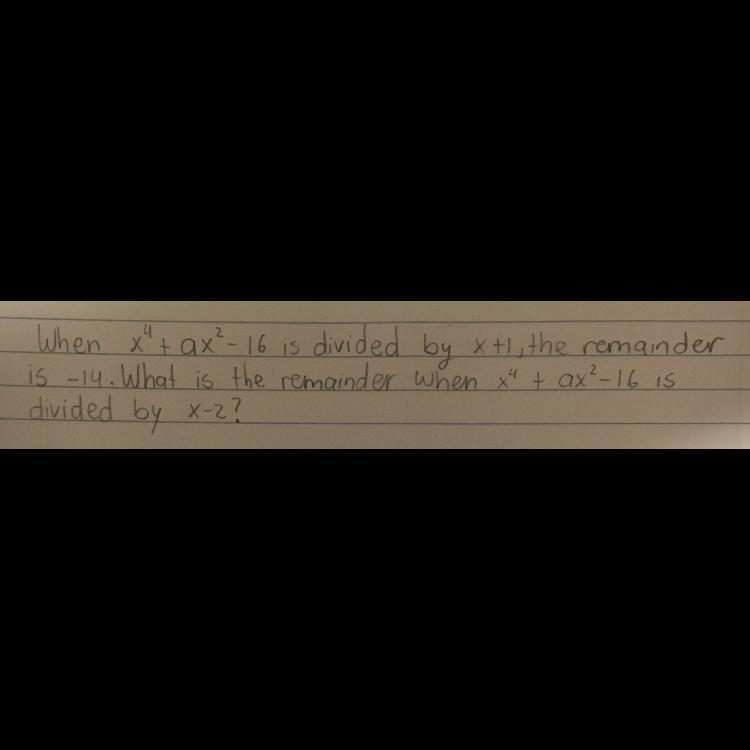 When x⁴ + ax² - 16 is divided by x+1, the remainder
is -14. What is the remainder when x⁴ + ax² - 16 is
divided by x-2?